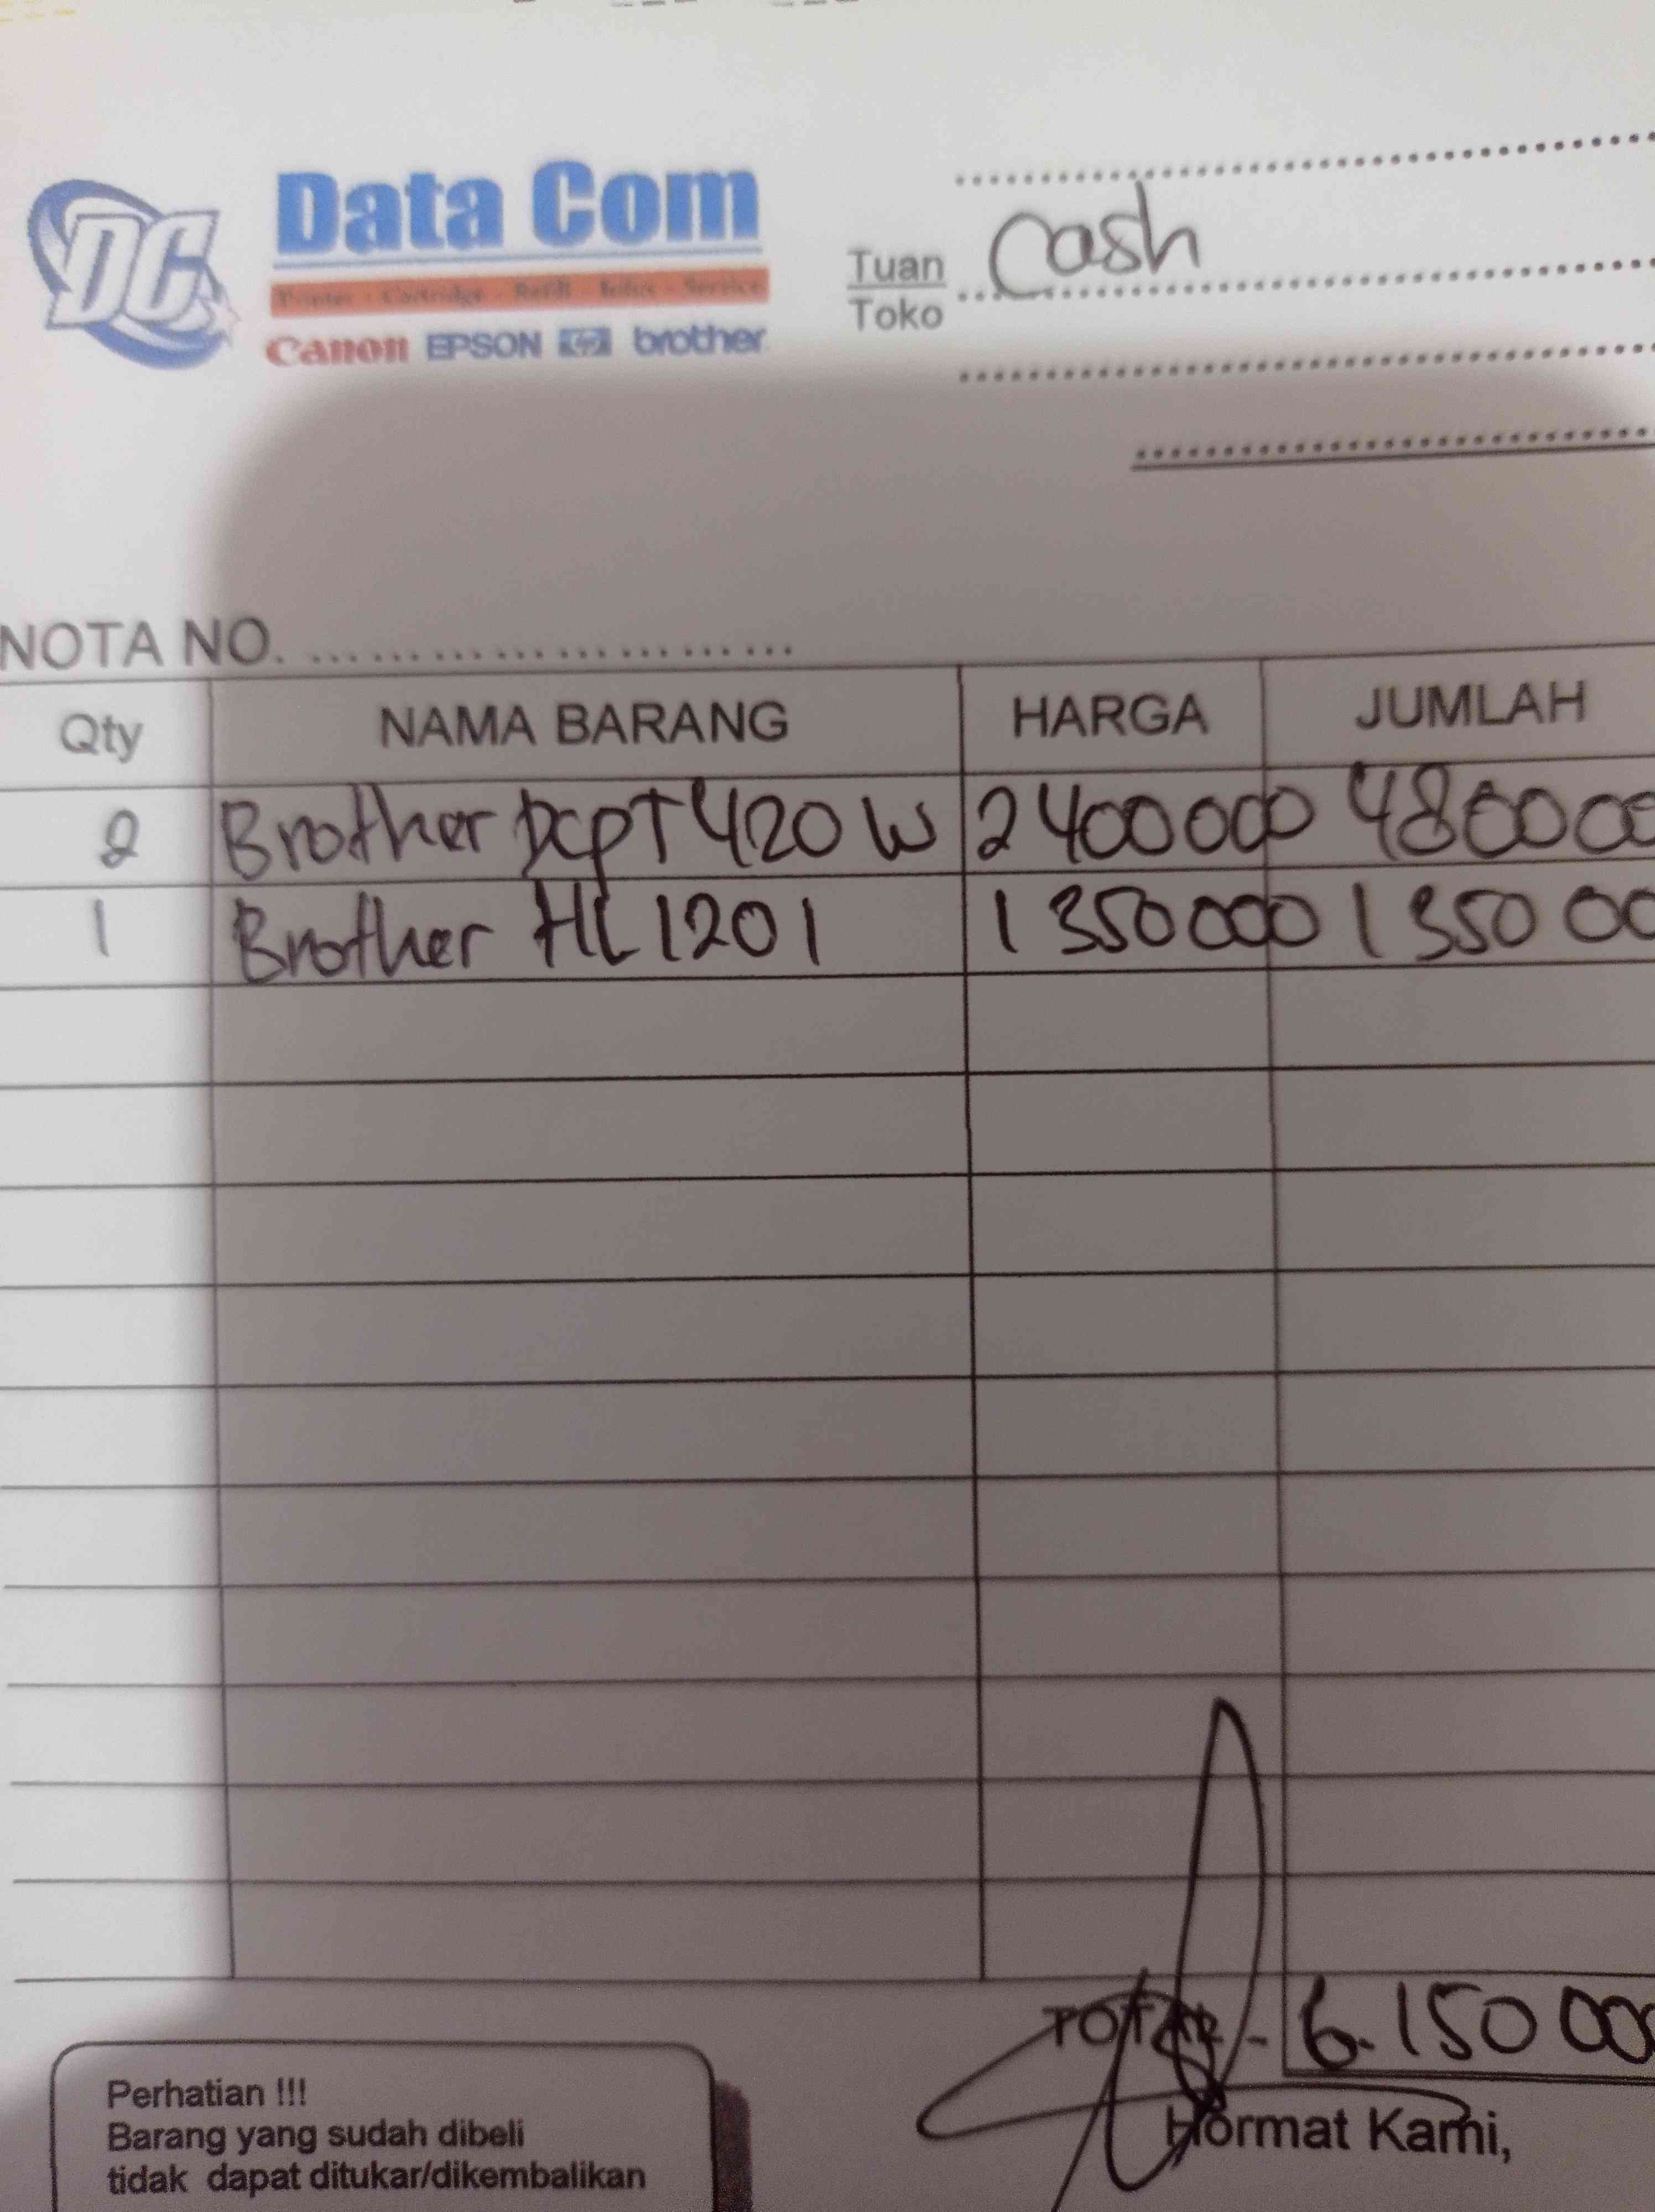 DC
Data Com
Printer - Cartridge - Refill - Infus - Service
Canon EPSON hp brother
Tuan Cash
Toko
NOTA NO. ........................
Qty NAMA BARANG HARGA JUMLAH
2 Brother DCPT 420 W 2400000 480000
1 Brother HL 1201 1350000 135000
TOTAL 6.150000
Hormat Kami,
Perhatian !!!
Barang yang sudah dibeli
tidak dapat ditukar/dikembalikan